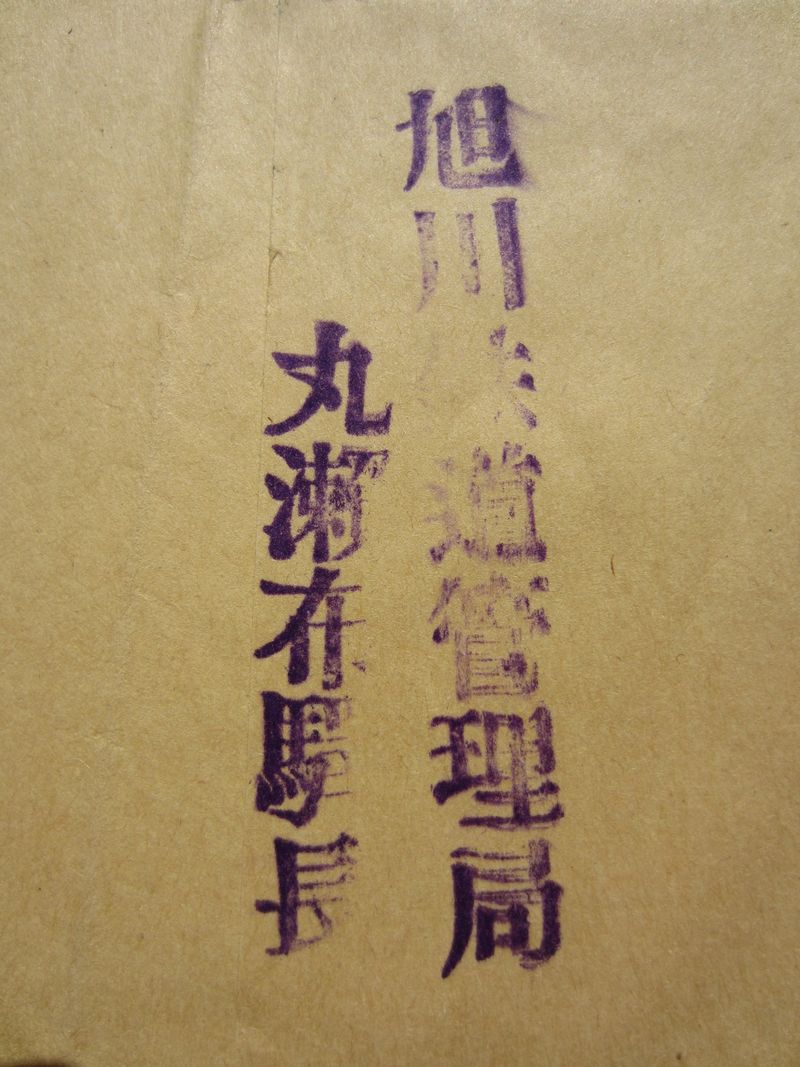 旭川鉄道管理局
丸瀬布駅長